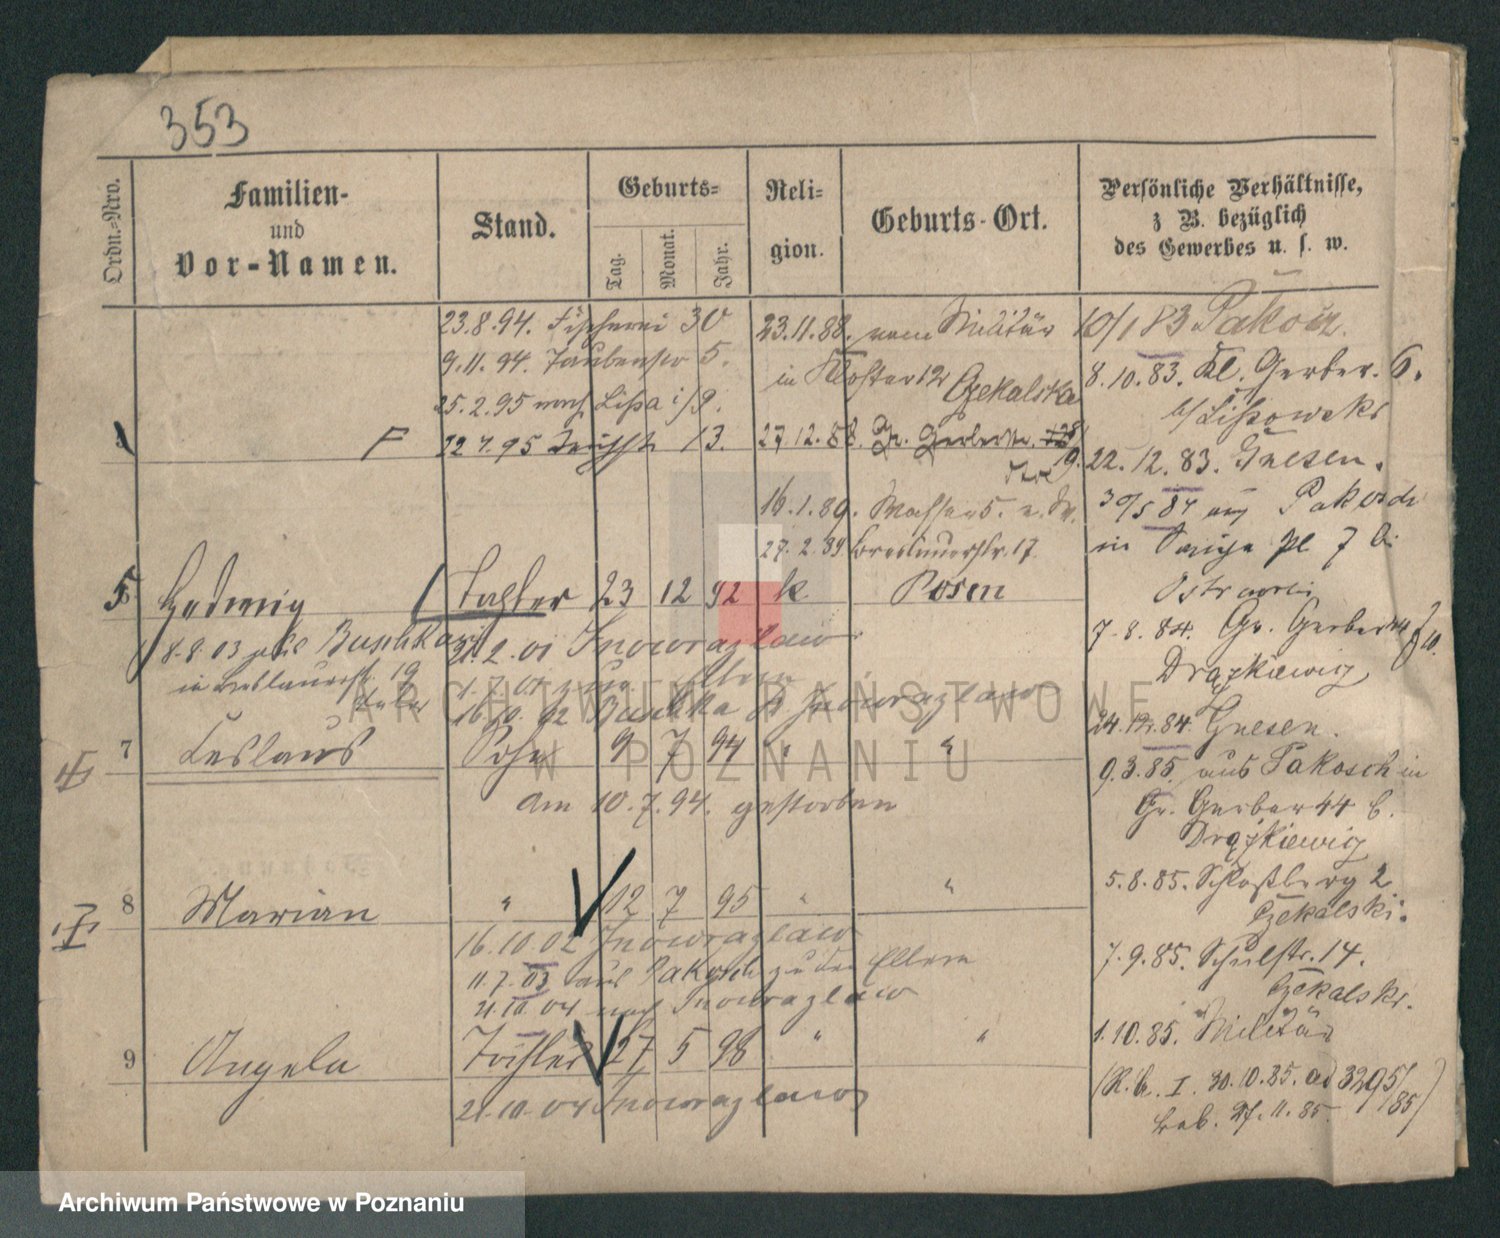 353
Ordn.-Nro.
Familien-
und
Vor-Namen.
Stand.
Geburts-
Tag.
Monat.
Jahr.
Reli-
gion.
Geburts-Ort.
Persönliche Verhältnisse,
z B. bezüglich
des Gewerbes u. s. w.
23.8.94. Fischerei 30
9.11.94. Taubenstr 5.
25.2.95 nach Lissa i/P.
F 22 7.95 13.
23.11.88. vom Militär
in Kloster 12
Czekalska
27.12.88. Gr. Gerberstr.
16.1.89. Wasser 5.
27.2.89 Breslauerstr. 17
5 Hedwig Tochter 23 12 92 k. Posen
8.8.03 Buschkowi
in Breslauerstr. 19
21.2.01 Inowrazlaw
1.7.01 zu Eltern
16.10.02 Inowrazlaw
7 Ceslaus Sohn 9 7 94 " "
Am 10.7.94. gestorben
8 Marian " 12 7 95 " "
16.10.02 Inowrazlaw
11.7.03 aus Pakosch zu den Eltern
21.10.04 nach Inowrazlaw
9 Angela Tochter 27 5 98 " "
21.10.04 Inowrazlaw
10/1 83 Pakosch.
8.10.83. Kl. Gerber. 6.
b/Lissowski
22.12.83. Gnesen.
30/5 84 aus Pakosch
in Pl 7 b.
7.8.84. Gr. Gerber 44
Drążkiewicz
24.12.84. Gnesen.
9.3.85. aus Pakosch in
Gr. Gerber 44 b.
Drążkiewicz
5.8.85. Schloßberg 2
Czekalski.
7.9.85. Schulstr. 14.
Czekalski.
1.10.85. Militär
(R.b. I. 30.10.85. ad 3295/85)
27.11.85.
ARCHIWUM PAŃSTWOWE
W POZNANIU
Archiwum Państwowe w Poznaniu